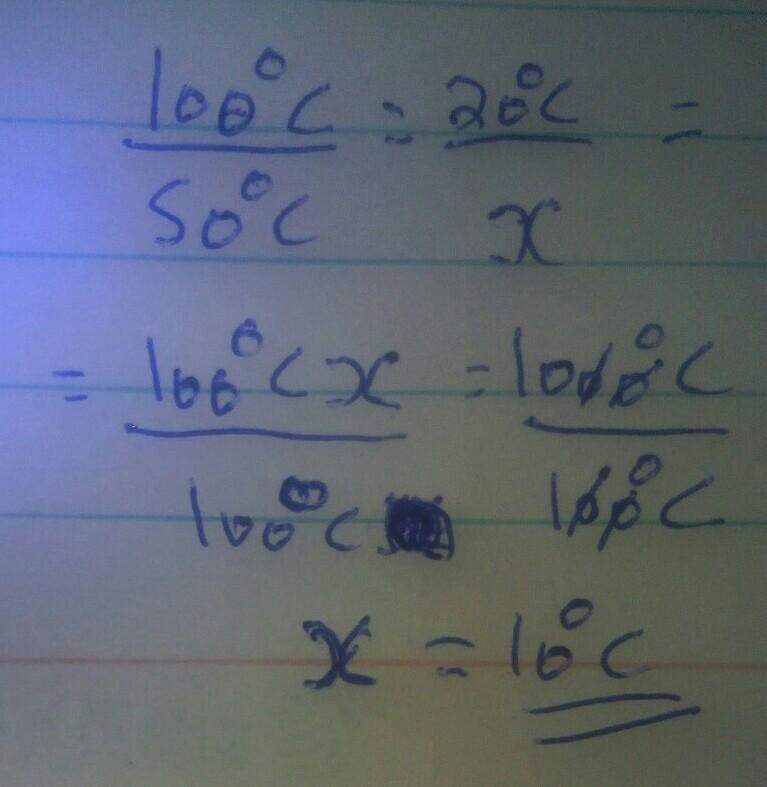 100°C = 20°C =
50°C x
= 100°C x = 1000°C
100°C 100°C
x = 10°C